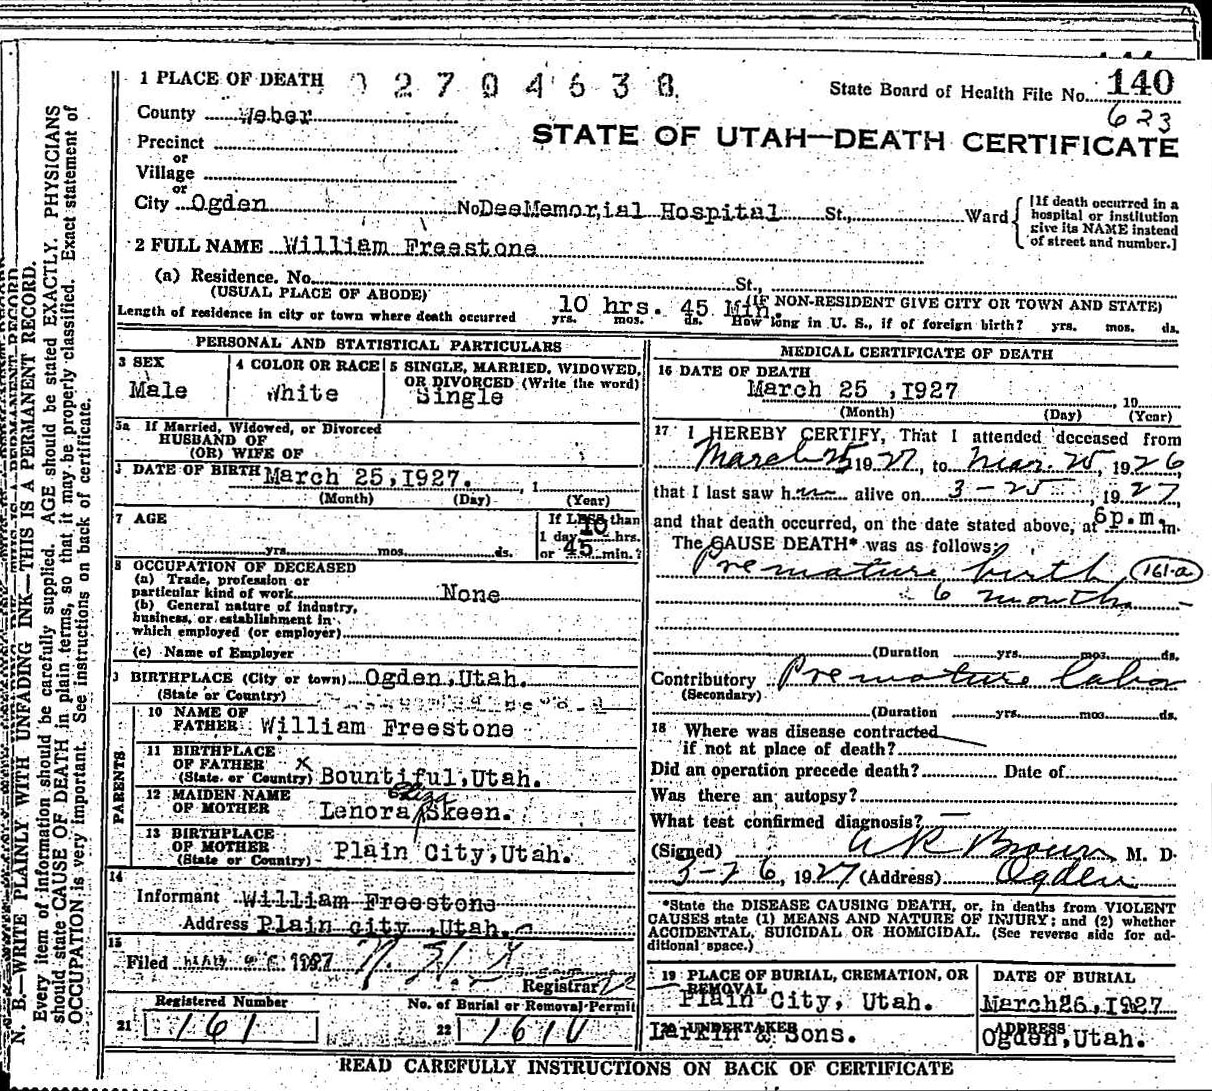 1 PLACE OF DEATH 02704638 State Board of Health File No. 140
County Weber 623
STATE OF UTAH—DEATH CERTIFICATE
Precinct
or
Village
or
City Ogden No DeeMemorial Hospital St., Ward [If death occurred in a hospital or institution give its NAME instead of street and number.]
2 FULL NAME William Freestone
(a) Residence. No. St.,
(USUAL PLACE OF ABODE) (IF NON-RESIDENT GIVE CITY OR TOWN AND STATE)
Length of residence in city or town where death occurred 10 hrs. 45 Min. yrs. mos. ds. How long in U. S., if of foreign birth? yrs. mos. ds.
PERSONAL AND STATISTICAL PARTICULARS
3 SEX
Male
4 COLOR OR RACE
White
5 SINGLE, MARRIED, WIDOWED,
OR DIVORCED (Write the word)
Single
5a If Married, Widowed, or Divorced
HUSBAND OF
(OR) WIFE OF
DATE OF BIRTH March 25,1927. , 1
(Month) (Day) (Year)
7 AGE
yrs. mos. ds.
If LESS than
1 day 10 hrs.
or 45 min.?
8 OCCUPATION OF DECEASED
(a) Trade, profession or
particular kind of work None
(b) General nature of industry,
business, or establishment in
which employed (or employer)
(c) Name of Employer
BIRTHPLACE (City or town) Ogden,Utah.
(State or Country)
PARENTS
10 NAME OF
FATHER William Freestone
11 BIRTHPLACE
OF FATHER X
(State or Country) Bountiful,Utah.
12 MAIDEN NAME
OF MOTHER Lenora Eliza Skeen.
13 BIRTHPLACE
OF MOTHER
(State or Country) Plain City,Utah.
14
Informant William Freestone
Address Plain city ,Utah.
15
Filed 1927
Registrar
Registered Number
21 161
No. of Burial or Removal Permit
22 1610
MEDICAL CERTIFICATE OF DEATH
16 DATE OF DEATH
March 25 ,1927 , 19
(Month) (Day) (Year)
17 I HEREBY CERTIFY, That I attended deceased from
March 25 1927, to Mar. 25, 1926,
that I last saw h alive on 3-25 , 1927,
and that death occurred, on the date stated above, at 6 p.m. m.
The CAUSE DEATH* was as follows:
Premature birth 161-a
6 months
(Duration yrs. mos. ds.
Contributory Premature labor
(Secondary)
(Duration yrs. mos. ds.
18 Where was disease contracted
if not at place of death?
Did an operation precede death? Date of
Was there an autopsy?
What test confirmed diagnosis? —
(Signed) A R Brown M. D.
3-26, 1927 (Address) Ogden
*State the DISEASE CAUSING DEATH, or, in deaths from VIOLENT
CAUSES state (1) MEANS AND NATURE OF INJURY; and (2) whether
ACCIDENTAL, SUICIDAL OR HOMICIDAL. (See reverse side for ad-
ditional space.)
19 PLACE OF BURIAL, CREMATION, OR
REMOVAL
Plain City, Utah.
DATE OF BURIAL
March26,1927
20 UNDERTAKER
Larkin & Sons.
ADDRESS
Ogden,Utah.
READ CAREFULLY INSTRUCTIONS ON BACK OF CERTIFICATE
N. B.—WRITE PLAINLY WITH UNFADING INK—THIS IS A PERMANENT RECORD.
Every item of information should be carefully supplied. AGE should be stated EXACTLY. PHYSICIANS
should state CAUSE OF DEATH in plain terms, so that it may be properly classified. Exact statement of
OCCUPATION is very important. See instructions on back of certificate.